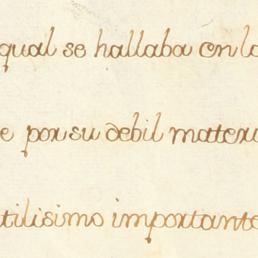 qual se hallaba en lo
e por su debil materi
tilisimo importante